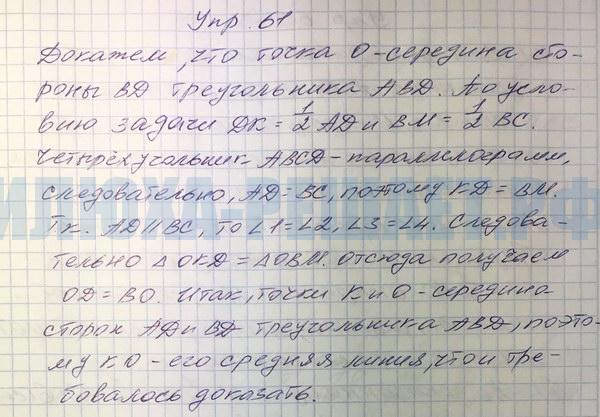 Упр. 61
Докажем, что точка O-середина сто-
роны BD треугольника ABD. По усло-
вию задачи DK = 1/2 AD и BM = 1/2 BC.
Четырёхугольник ABCD-параллелограмм,
следовательно, AD = BC, поэтому KD = BM.
Т.к. AD || BC, то ∠1 = ∠2, ∠3 = ∠4. Следова-
тельно △ OKD = △ OBM. Отсюда получаем
OD = BO. Итак, точки K и O - середина
сторон AD и BD треугольника ABD, поэто-
му KO - его средняя линия, что и тре-
бовалось доказать.